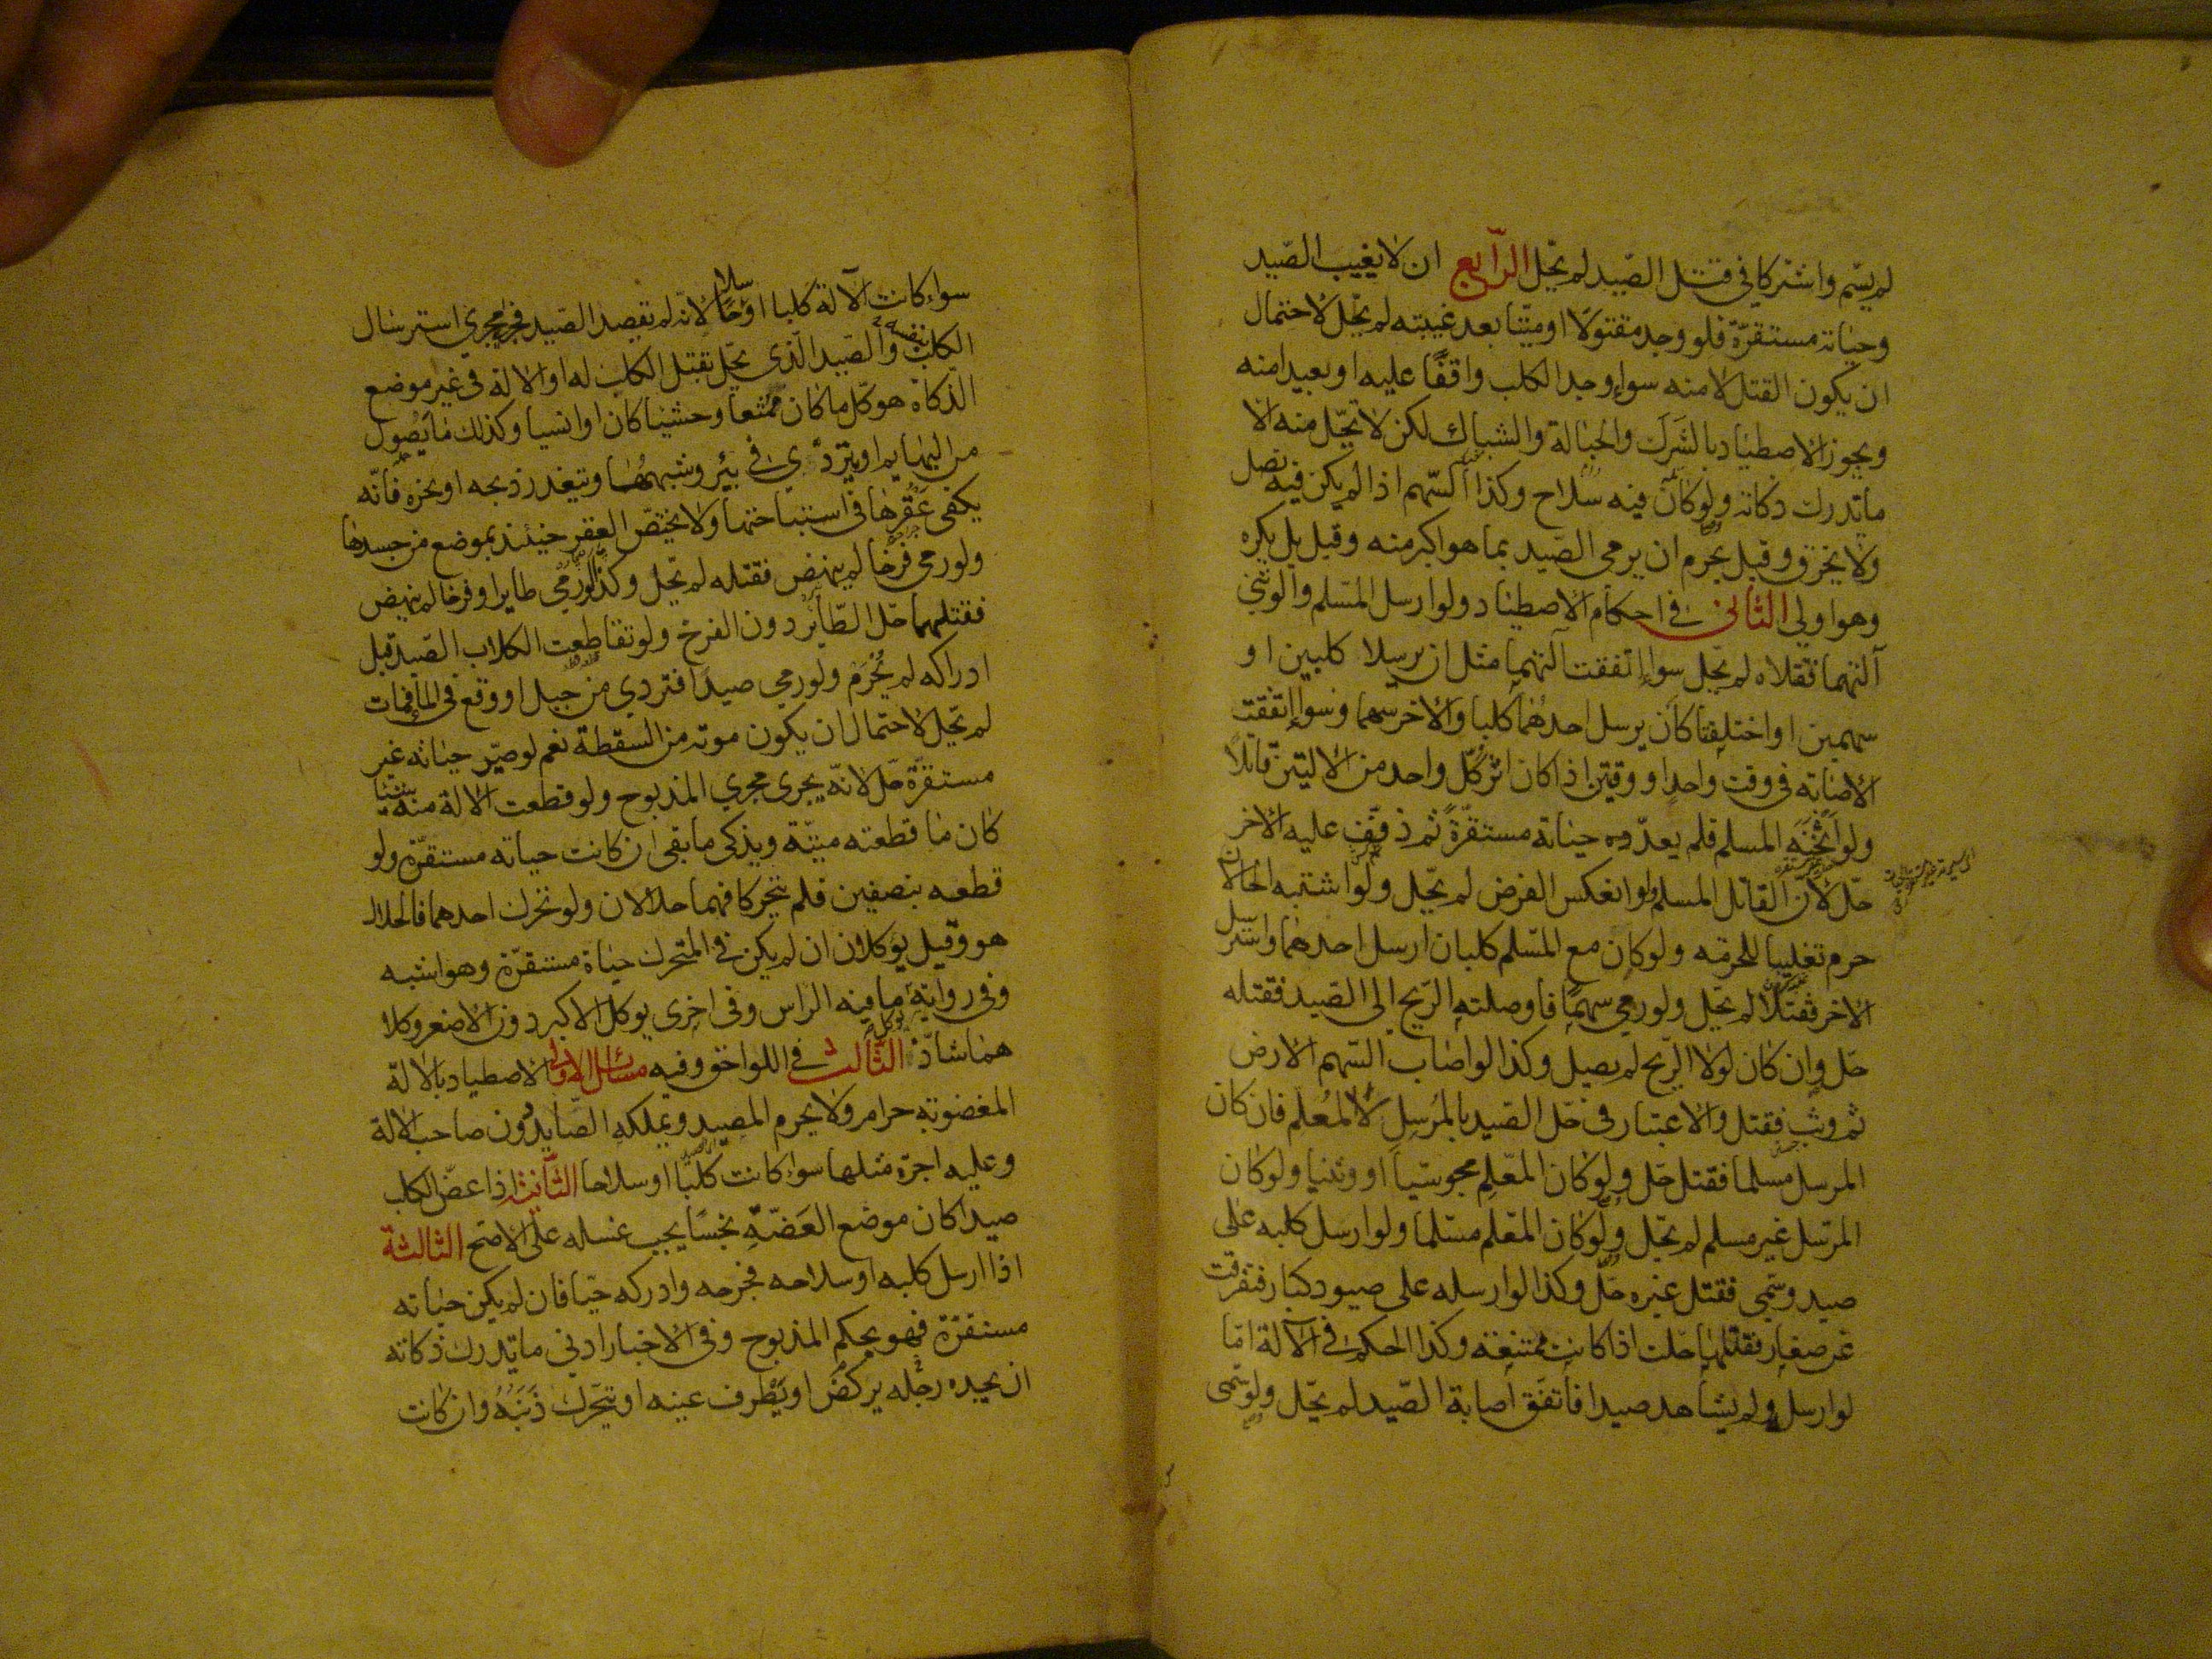 لم يسّم واشتركا في قتل الصّيد لم يحّل الرّابع ان لا يغيب الصّيد
وحياته مستقرّة فلو وجد مقتولًا او ميّتا بعد غيبته لم يحّل لاحتمال
ان يكون القتل لا منه سواء وجد الكلب واقفًا عليه او بعيدا منه
ويجوز الاصطياد بالشَرَك والحبالة والشباك لكن لا تحّل منه الا
ما تدرك ذكاته ولو كان فيه سلاح وكذا السّهم اذا لم يكن فيه نصل
ولا يخرق وقيل يحرم ان يرمى الصّيد بما هو اكبر منه وقيل بل يكره
وهو اولى الثاني في احكام الاصطياد ولو ارسل المسّلم والوثني
آلتهما فقتلاه لم يحّل سواء اتفقت آلتهما مثل ان يرسلا كلبين او
سهمين او اختلفتا كان يرسل احدهما كلبا والاخر سهما وسواء اتفقت
الاصابه في وقت واحد او وقتين اذا كان اثر كّل واحد من الاليتين قاتلًا
ولو اثخنه المسلم فلم يعد وه حياته مستقرّةً ثم ذفّف عليه الاخر
حّل لان القاتل المسلم ولو انعكس الفرض لم يحّل ولو اشتبه الحالان
حرم تغليبا للحرمه ولو كان مع المسّلم كلبان ارسل احدهما واسترسل
الاخر فقتلا لم يحّل ولو رمى سهمًا فاوصلته الرّيح الى الصّيد فقتله
حّل وان كان لولا الرّيح لم يصل وكذا لو اصاب السّهم الارض
ثم وثب فقتل والاعتبار في حّل الصّيد بالمُرسِل لا المُعلم فان كان
المرسل مسلما فقتل حّل ولو كان المعّلم مجوسّيا او وثنيا ولو كان
المرسل غير مسلم لم يحّل ولو كان المعّلم مسّلما ولو ارسل كلبه على
صيد وسّمى فقتل غيره حّل وكذا لو ارسله على صيود كبار فتفرقت
عن صغار فقتلها حلت اذا كانت ممتنعة وكذا الحكم في الآلة امّا
لو ارسل ولم يشاهد صيدا فاتفق اصابة الصّيد لم يحّل ولو سّمى
سواء كانت الآلة كلبا او سلاحًا لانّه لم يقصد الصّيد فجرى مجرى استرسال
الكلب نفسه والصّيد الّذى يحّل بقتل الكلب له او الالة في غير موضع
الذّكاة هو كّل ما كان ممتنعا وحشيا كان او انسيا وكذلك ما يَصُول
من البهايم او يتردى في بئر وشبهها ويتعذر ذبحه او نحره فانّه
يكفى عَقْرها في استباحتها ولا يختصّ العقر حينئذ بموضع من جسدها
ولو رمى فرخا لم ينهض فقتله لم يحّل وكذا لو رمى طايرا وفرخا لم ينهض
فقتلهما حّل الطّاير دون الفرخ ولو تقاطعت الكلاب الصّيد قبل
ادراكه لم يُحرم ولو رمى صيدًا فتردى من جبل او وقع في الماء فمات
لم يحّل لاحتمال ان يكون موته من السقطة نعم لو صيّر حياته غير
مستقرّة حّل لانّه يجرى مجرى المذبوح ولو قطعت الالة منه شيئا
كان ما قطعته ميتة ويذكى ما بقى ان كانت حياته مستقرّة ولو
قطعه بنصفين فلم يتحركا فهما حلالان ولو تحرك احدهما فالحلال
هو وقيل يوكلان ان لم يكن في المتحرك حياة مستقرّة وهو اشبه
وفي رواية يوكل ما فيه الراس وفي اخرى يوكل الاكبر دون الاصغر وكلا
هما شاذّ الثّالث في اللواحق وفيه مسائل الاولى الاصطياد بالالة
المغصوبة حرام ولا يحرم المصيد ويملكه الصّايد دون صاحب الالة
وعليه اجرة مثلها سواء كانت كلبًا او سلاحا الثّانية اذا عضّ الكلب
صيدا كان موضع العَضّة نجسًا يجب غسله على الاصّح الثالثة
اذا ارسل كلبه او سلاحه فجرحه وادركه حيّا فان لم يكن حياته
مستقرّة فهو بحكم المذبوح وفي الاخبار ادنى ما تدرك ذكاته
ان يجده رجله يركض او يَطْرف عينه او يتحّرك ذَنَبُه وان كانت